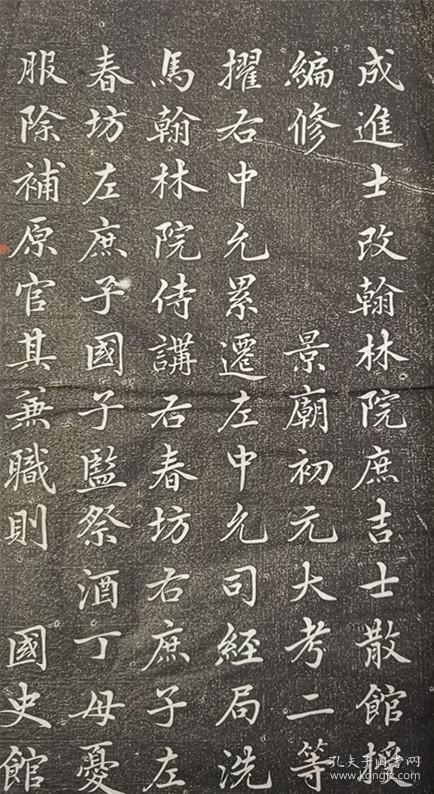 成進士改翰林院庶吉士散館授
編修　　景廟初元大考二等
擢右中允累遷左中允司經局洗
馬翰林院侍講右春坊右庶子左
春坊左庶子國子監祭酒丁母憂
服除補原官其兼職則　國史館
孔夫子旧书网
www.kongfz.com